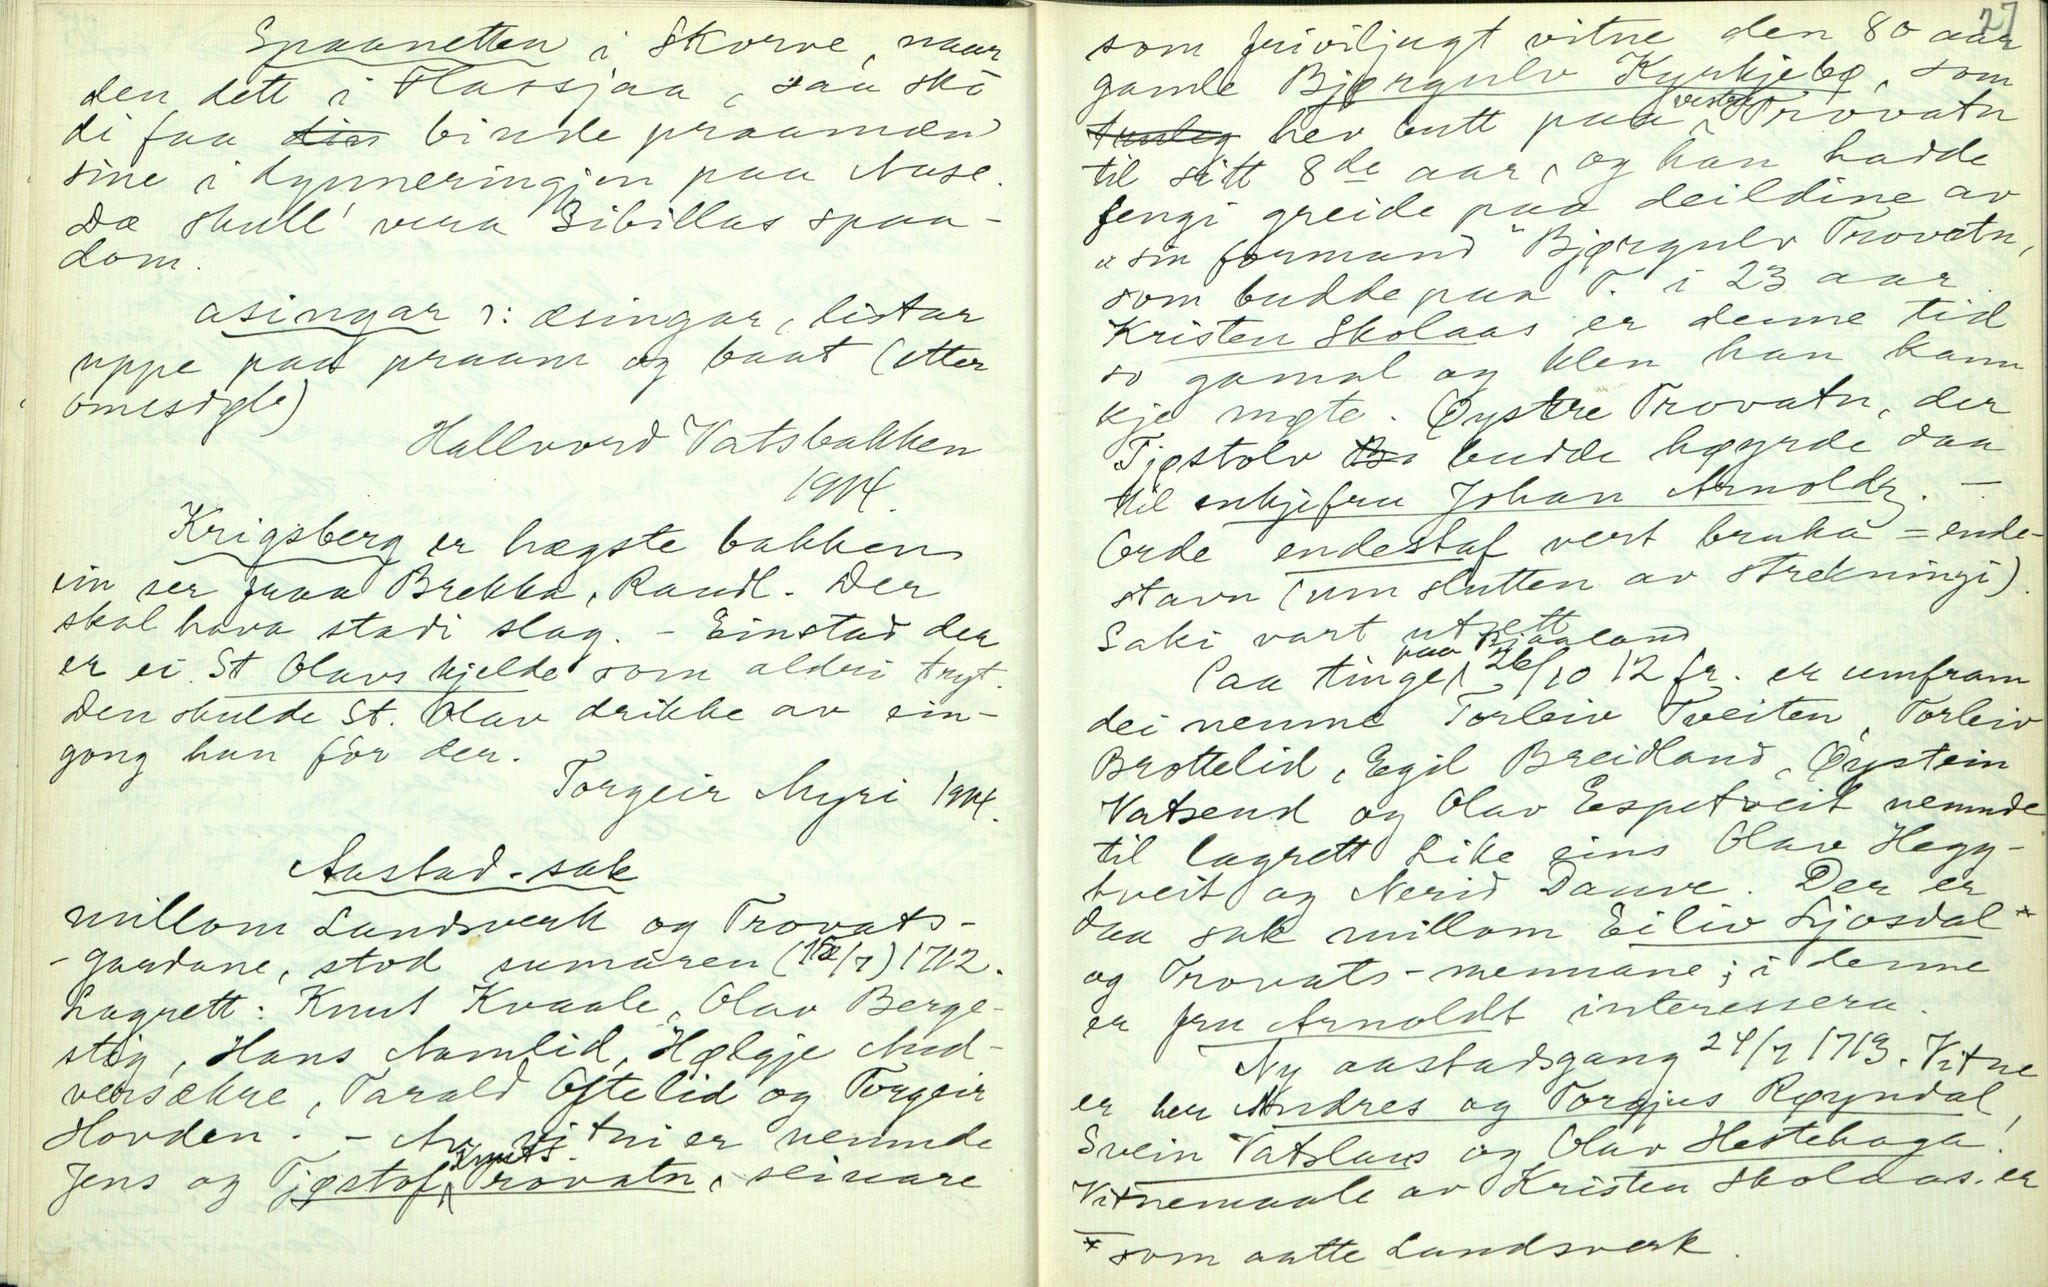 Spaanetten i Skorve, naar
den dett i Flaasjaa, saa sko
di faa binde praamæn
sine i kynneringjen paa Nuse.
Dæ skull' vera Sibillas spaa-
dom.
asingar ɔ: æsingar, listar
uppe paa praam og baat (etter
omesigle)
Hallvord Vatsbakken
1914.
Krigsberg er høgste bakken
ein ser fraa Brekka, Raudl. Der
skal hava stadi slag. – Einstad der
er ei St Olavs kjelde som aldri tryt.
Den skulde St. Olav drikke av ein-
gong han fór der.
Torgeir Myri 1914.
Aastad-sak
millom Landsverk og Trovats-
-gardane, stod sumaren (18/7) 1712.
Lagrett: Knut Kvaale, Olav Berge-
stig, Hans Aamlid, Hølgje Aud-
versækre, Tarald Oftelid og Torgeir
Hovden. – Av vitni er nemnde
Jens og Tjøstof Knuts. Trovatn, seinare
27
som friviljugt vitne den 80 aar
gamle Bjørgulv Kyrkjebø, som
truleg hev butt paa vestre Trovatn
til sitt 8de aar, og han hadde
fengi greide paa deildine av
"sin formand" Bjørgulv Trovatn,
som budde paa T. i 23 aar.
Kristen Skolaas er denne tid
so gamal og klen han kann
kje møte. Øystre Trovatn, der
Tjøstolv budde høyrde daa
til enkjefru Johan Arnoldz. –
Orde endestaf vert bruka = ende-
stavn (um slutten av strekningi).
Saki vart utsett
Paa tinge paa Bjaaland 26/10 12 fr. er umfram
dei nemne Torleiv Tveiten, Torleiv
Brottelid, Egil Breidland, Øystein
Vatsend og Olav Espetveit nemnde
til lagrett. Like eins Olav Hegg-
tveit og Nerid Daure. Der er
daa sak millom Eiliv Ljosdal*
og Trovats-mennane; i denne
er fru Arnoldt interessera.
Ny aastadsgang 24/7 1713. Vitne
er her Andres og Torgjus Røyndal,
Svein Vatslaus og Olav Hestehaga.
Vitnemaale av Kristen Skolaas. er
* som aatte Landsverk.